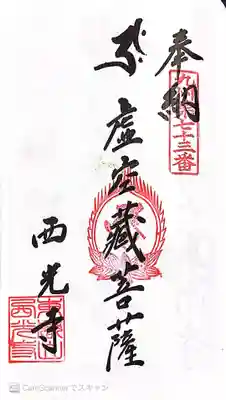 奉納
九州八十三番
虚空蔵菩薩
西光寺
CamScannerでスキャン